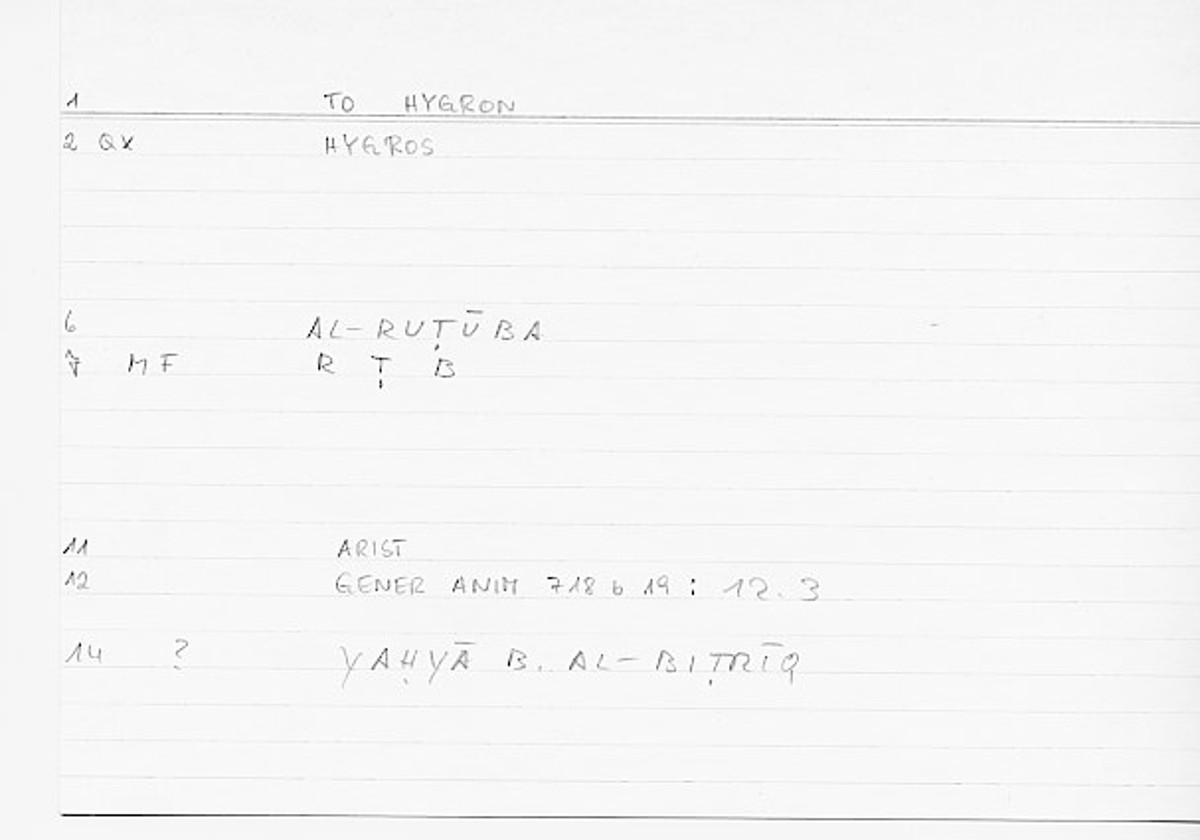 1 TO HYGRON
2 QX HYGROS
6 AL-RUṬŪBA
7 MF R Ṭ B
11 ARIST
12 GENER ANIM 718 b 19 : 12.3
14 ? YAḤYĀ B. AL-BIṬRĪQ